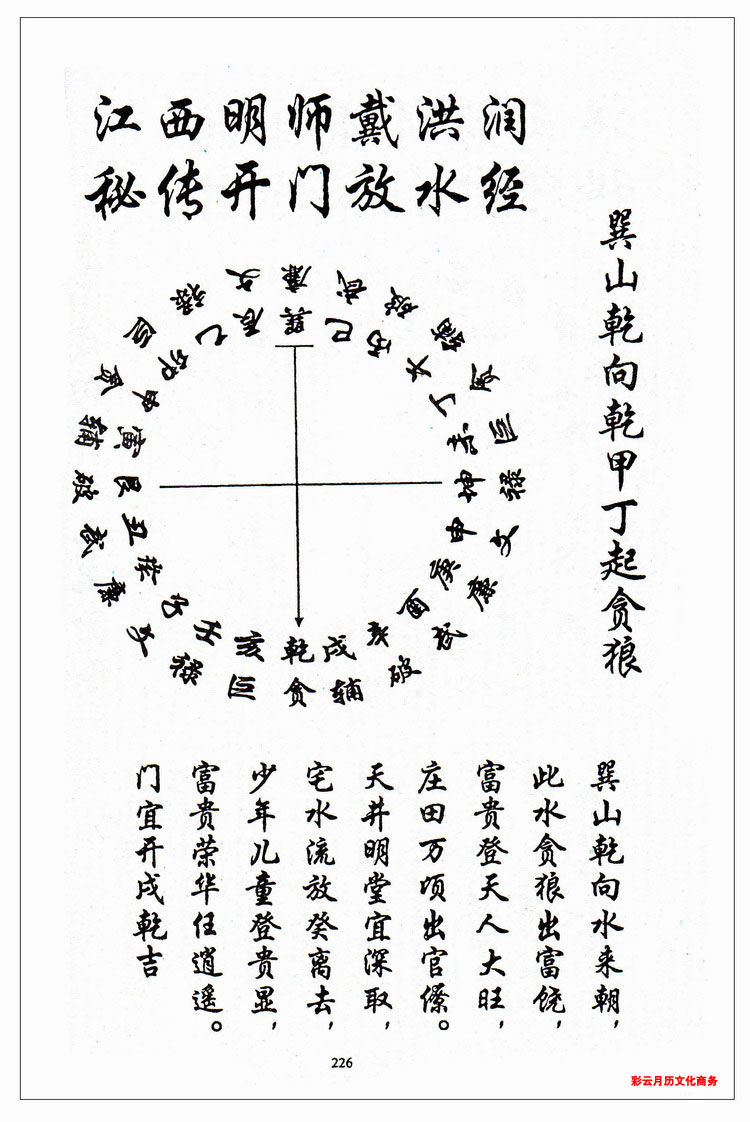 江西明师戴洪润
秘传开门放水经
巽山乾向乾甲丁起贪狼
廉武破辅贪巨禄文廉武破辅贪巨禄文廉武破辅贪巨禄文
巽巳丙午丁未坤申庚酉辛戌乾亥壬子癸丑艮寅甲卯乙辰
巽山乾向水来朝，
此水贪狼出富饶，
富贵登天人大旺，
庄田万顷出官僚。
天井明堂宜深取，
宅水流放癸离去，
少年儿童登贵显，
富贵荣华任逍遥。
门宜开戌乾吉
226
彩云月历文化商务